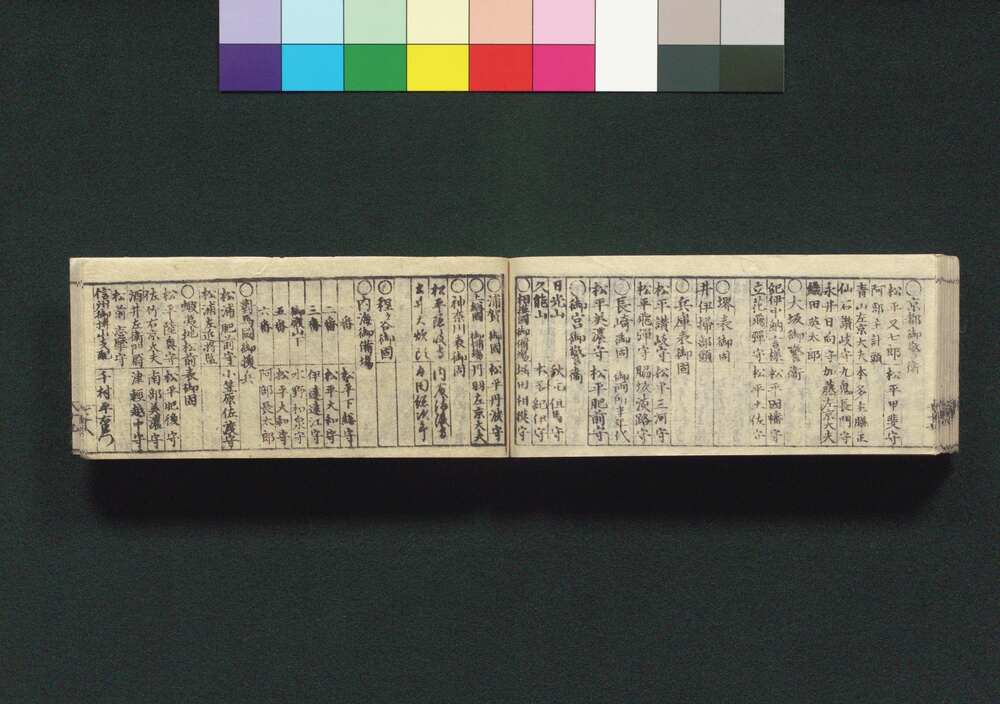 ○京都御警衛
松平又七郎 松平甲斐守
阿部主計頭
青山左京大夫 本多主膳正
仙石讃岐守 九鬼長門守
永井日向守 加藤左京大夫
織田英太郎
○大坂御警衛
紀伊中納言様 松平因幡守
立花飛騨守 松平土佐守
○堺表御固
井伊掃部頭
○兵庫表御固
松平讃岐守 松平三河守
松平飛騨守 脇坂淡路守
○長崎御固
松平美濃守 松平肥前守
御宮御警衛
日光山 秋元但馬守
久能山 本多紀伊守
○相模國御備場 堀田相模守
○浦賀御固 松平丹波守
○上総國御備場 丹羽左京大夫
○神奈川表御固
○程ヶ谷御固
○内海御備場
一番 松平下総守
二番 松平大和守
三番 伊達遠江守
御殿山下 水野和泉守
五番 松平大和守
六番 阿部長太郎
○對馬國御援兵
松浦肥前守 小笠原佐渡守
○蝦夷地松前表御固
松平陸奥守 松平肥後守
佐竹右京大夫 南部美濃守
酒井左衛門尉 津軽越中守
松前志摩守
千村平右衛門